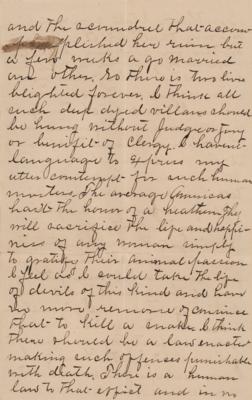 and the scoundrel that accom-
plished her ruin but
a few weeks a go married
an other. So there is two lives
blighted forever, I think all
such deep dyed villans should
be hung without Judge or Jury
or benifit of Clergy. I havent
language to express my
utter contempt for such human
monsters. The average American
hasnt the honor of a heathen. They
will sacrifice the life and happi-
ness of any woman simply
to gratify their animal passion
I feel as I could take the life
of devils of this kind and have
no more remorse of concince
that to kill a snake. I think
there should be a law enacted
making such offences punishable
with death. There is a human
law to that effect and in no